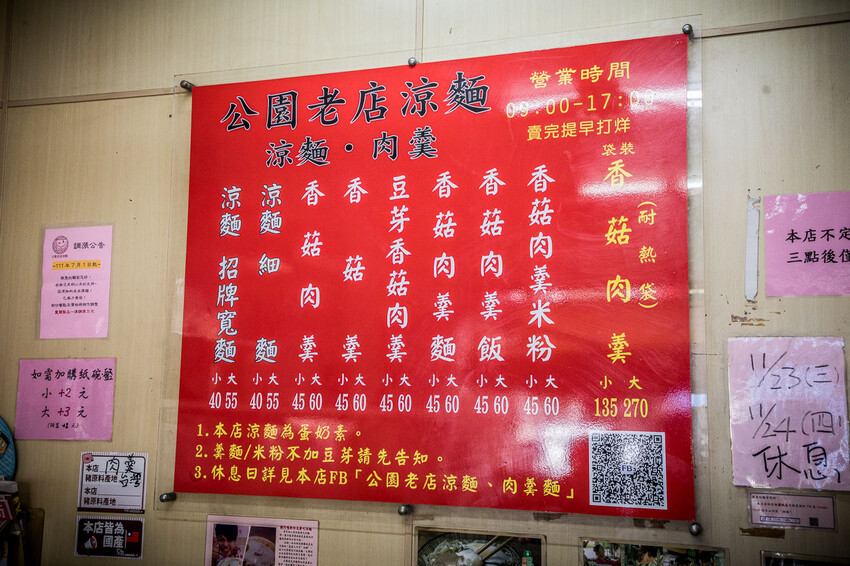 公園老店涼麵
涼麵·肉羹
營業時間
09:00-17:00
賣完提早打烊
涼麵 招牌寬麵
小 大
40 55
涼麵 細麵
小 大
40 55
香菇肉羹
小 大
45 60
香菇羹
小 大
45 60
豆芽香菇肉羹
小 大
45 60
香菇肉羹麵
小 大
45 60
香菇肉羹飯
小 大
45 60
香菇肉羹米粉
小 大
45 60
袋裝
香菇肉羹
(耐熱袋)
小 大
135 270
1.本店涼麵為蛋奶素。
2.羹麵/米粉不加豆芽請先告知。
3.休息日詳見本店FB「公園老店涼麵、肉羹麵」
FB
調漲公告
~111年7月1日起~
如需加購紙碗盤
小+2元
大+3元
本店 肉羹
豬原料產地 台灣
本店
豬原料產地
本店皆為
國產
本店不定
三點後僅
11/23(三)
11/24(四)
休息